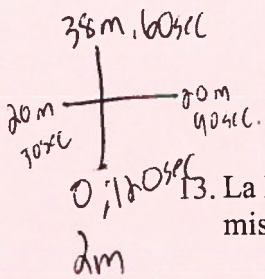 38m, 60sec
20m
30sec
20m
90sec.
0;120sec
2m
13. La
mis